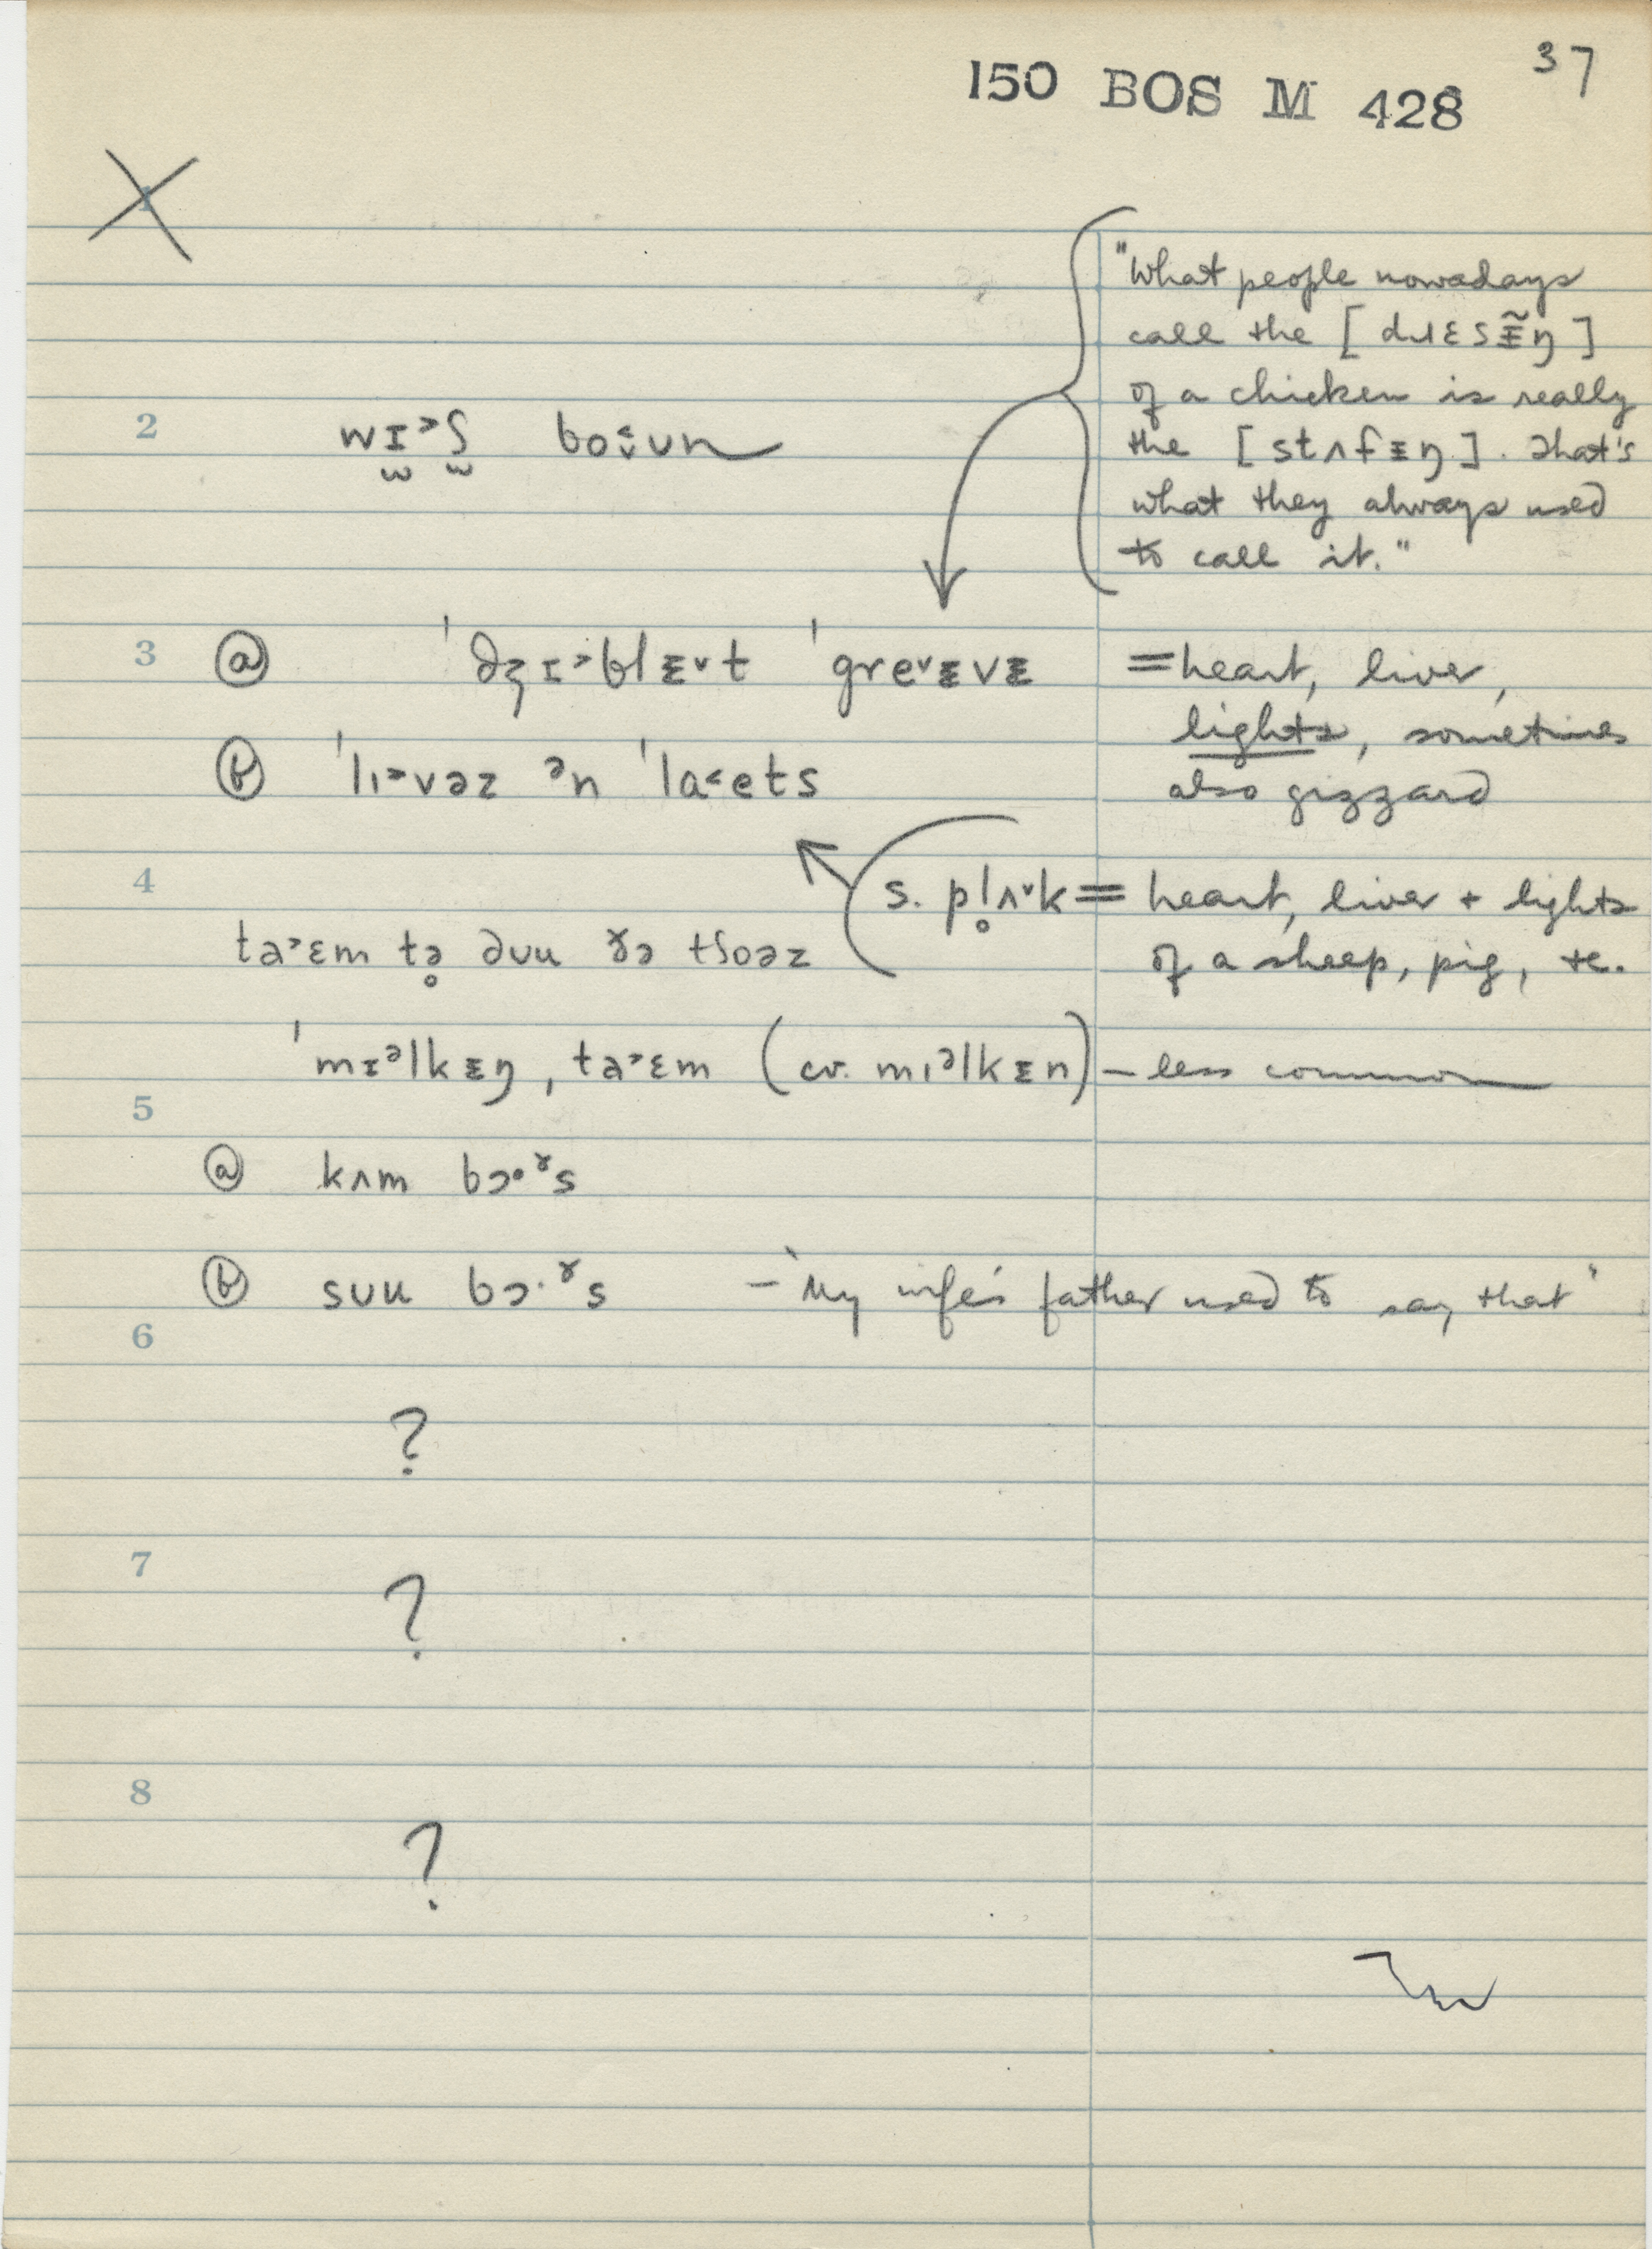 37
150 BOS M 428
1
"What people nowadays
call the [ dɹɛsɪ̵̃ŋ ]
of a chicken is really
the [ stʌfɪ̵ŋ ]. That's
what they always used
to call it."
2 wɪ˃ʃ bo˂̬ʊn
3 ⓐ ˈdʒɪ˃blɪ̵˅t ˈgre˅ɪ̵vɪ̵ = heart, liver,
lights, sometimes
also gizzard
ⓑ ˈlɪ˃vəz ᵊn ˈla˂ets
4 s. pl̥ʌ˅k = heart, liver + lights
of a sheep, pig, etc.
ta˃ɛm tə̥ dʊu ðə tʃoəz
ˈmɪᵊlkɪ̵ŋ, ta˃ɛm (cv. mɪᵊlkɪ̵n) – less common
5
ⓐ kʌm bɔ·ᵞs
ⓑ sʊu bɔ·ᵞs – "My wife's father used to say that"
6
?
7
?
8
?